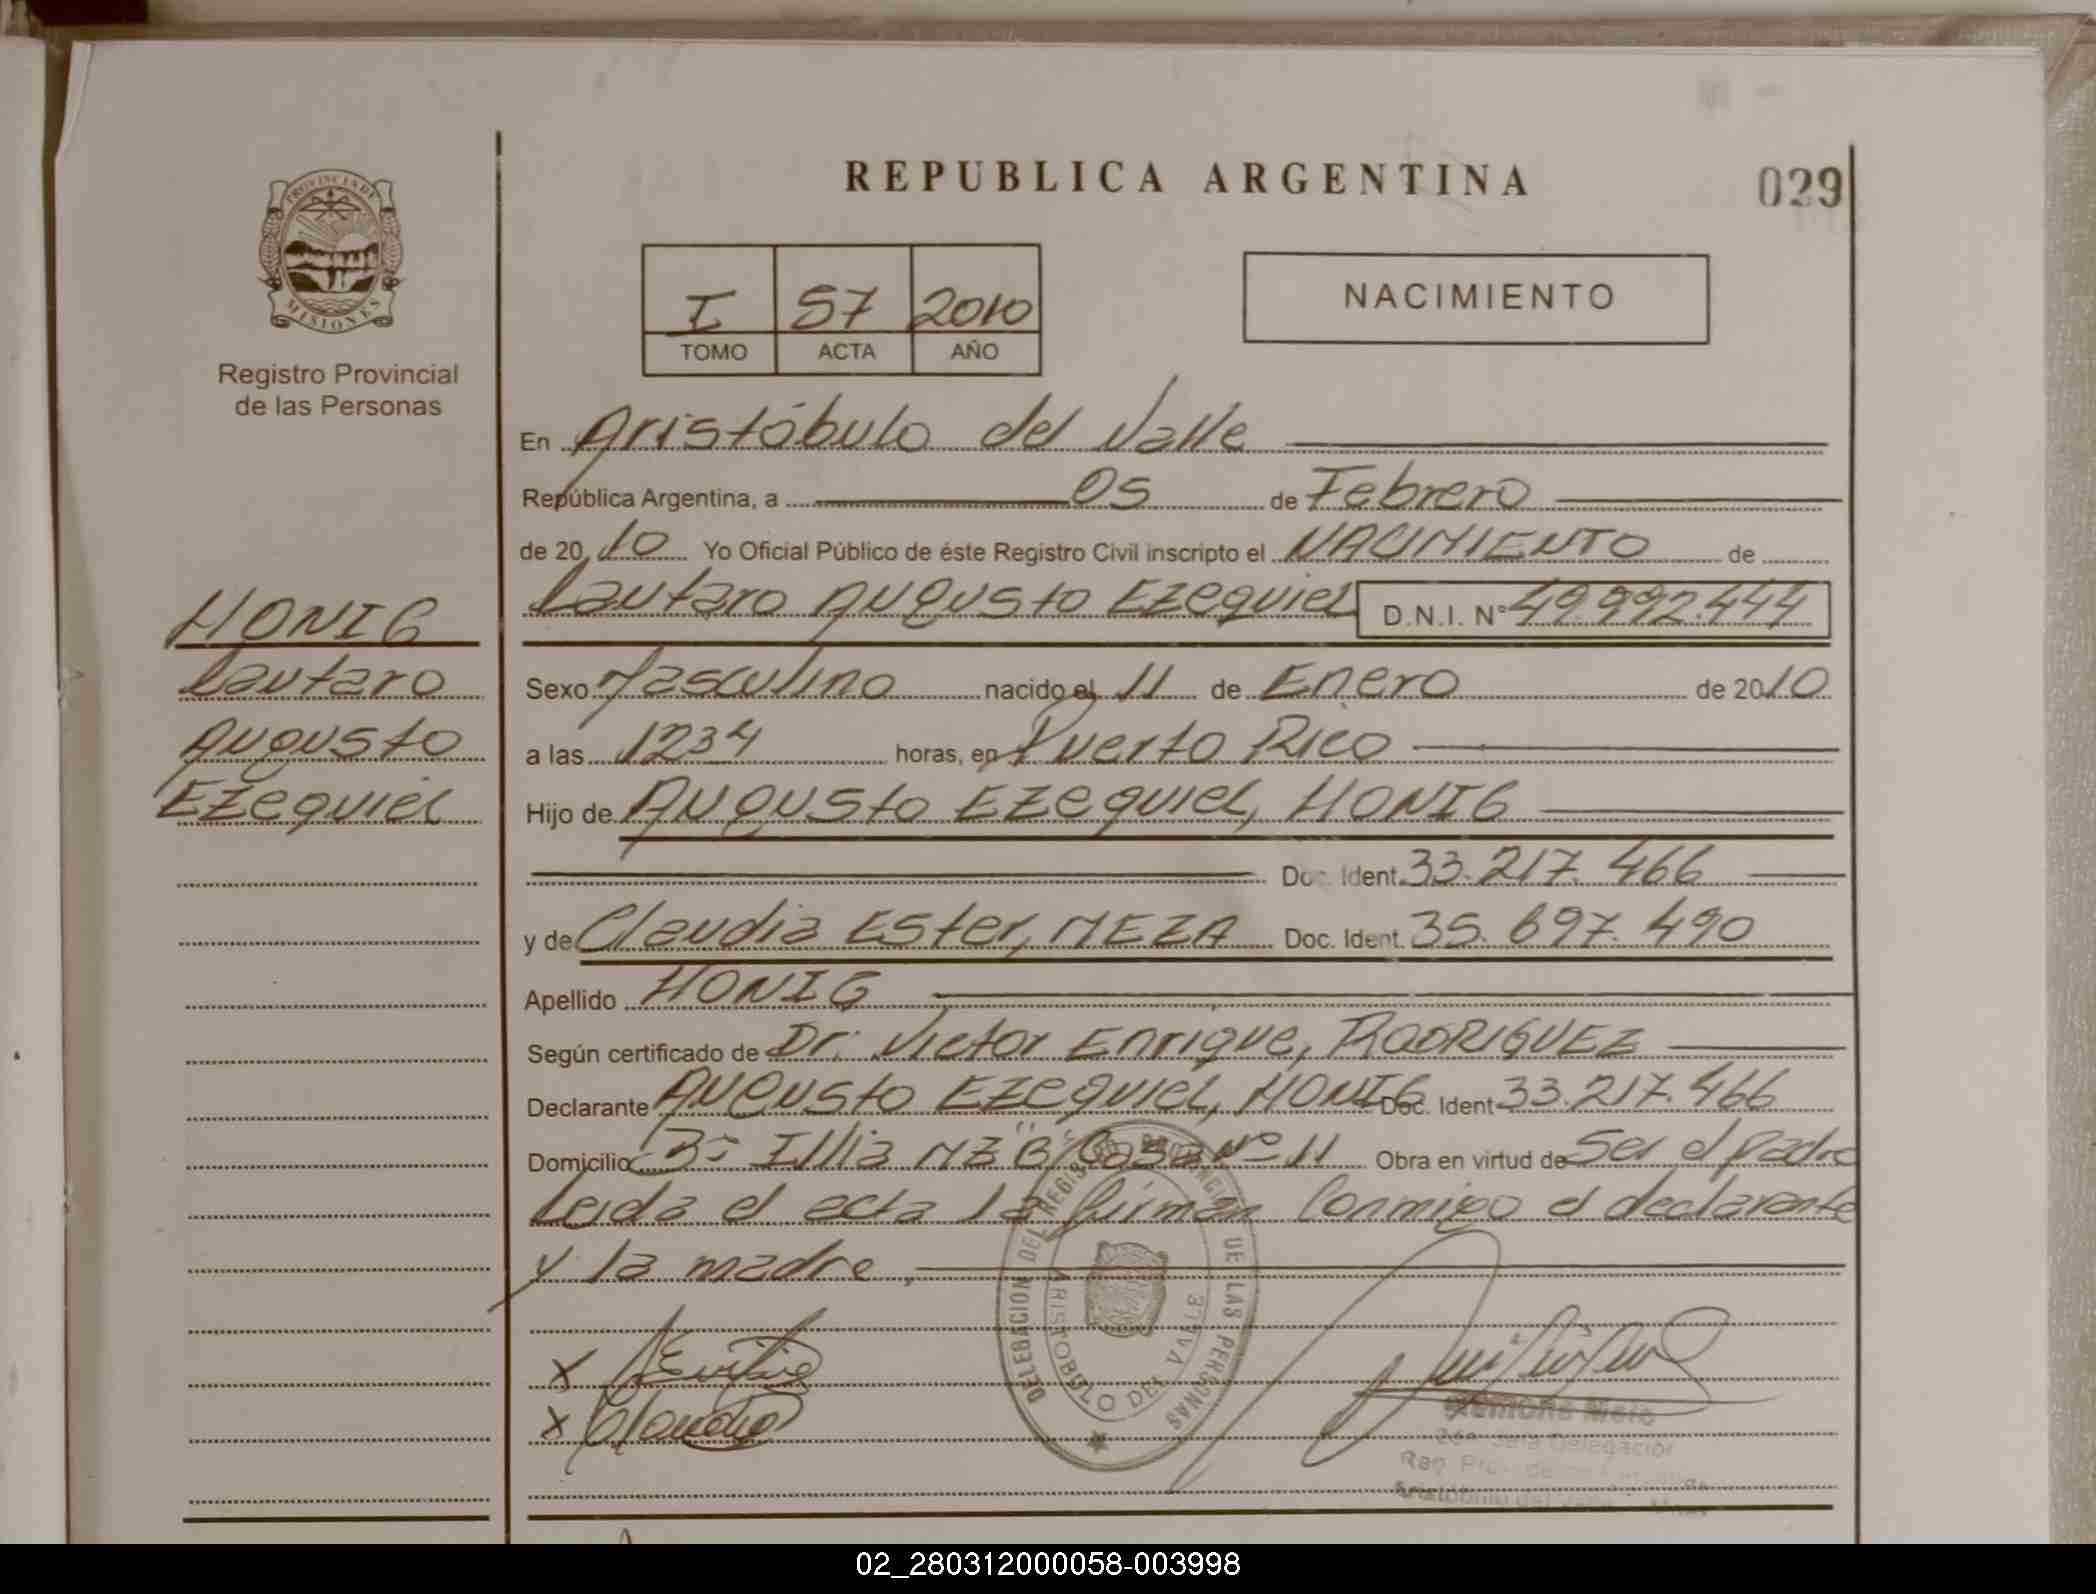 REPUBLICA ARGENTINA
029
PROVINCIA DE
MISIONES
Registro Provincial
de las Personas
I 57 2010
TOMO ACTA AÑO
NACIMIENTO
En Aristóbulo del Valle
República Argentina, a 05 de Febrero
de 20 10 Yo Oficial Público de éste Registro Civil inscripto el NACIMIENTO de
Lautaro Augusto Ezequiel D.N.I. Nº 49.992.444
HONIG
Lautaro
Augusto
Ezequiel
Sexo Masculino nacido el 11 de Enero de 2010
a las 1234 horas, en Puerto Rico
Hijo de Augusto Ezequiel, HONIG
Doc. Ident. 33.217.466
y de Claudia Ester, MEZA Doc. Ident. 35.697.490
Apellido HONIG
Según certificado de Dr. Victor Enrique, RODRIGUEZ
Declarante Augusto Ezequiel, HONIG Doc. Ident 33.217.466
Domicilio Bº Illia MZ "B" Casa Nº 11 Obra en virtud de Ser el padre
Leida el acta la firman Conmigo el declarante
y la madre.
X
X Claudia
DELEGACION DEL REGISTRO PROVINCIAL DE LAS PERSONAS
ARISTOBULO DEL VALLE
Delegación
02_280312000058-003998